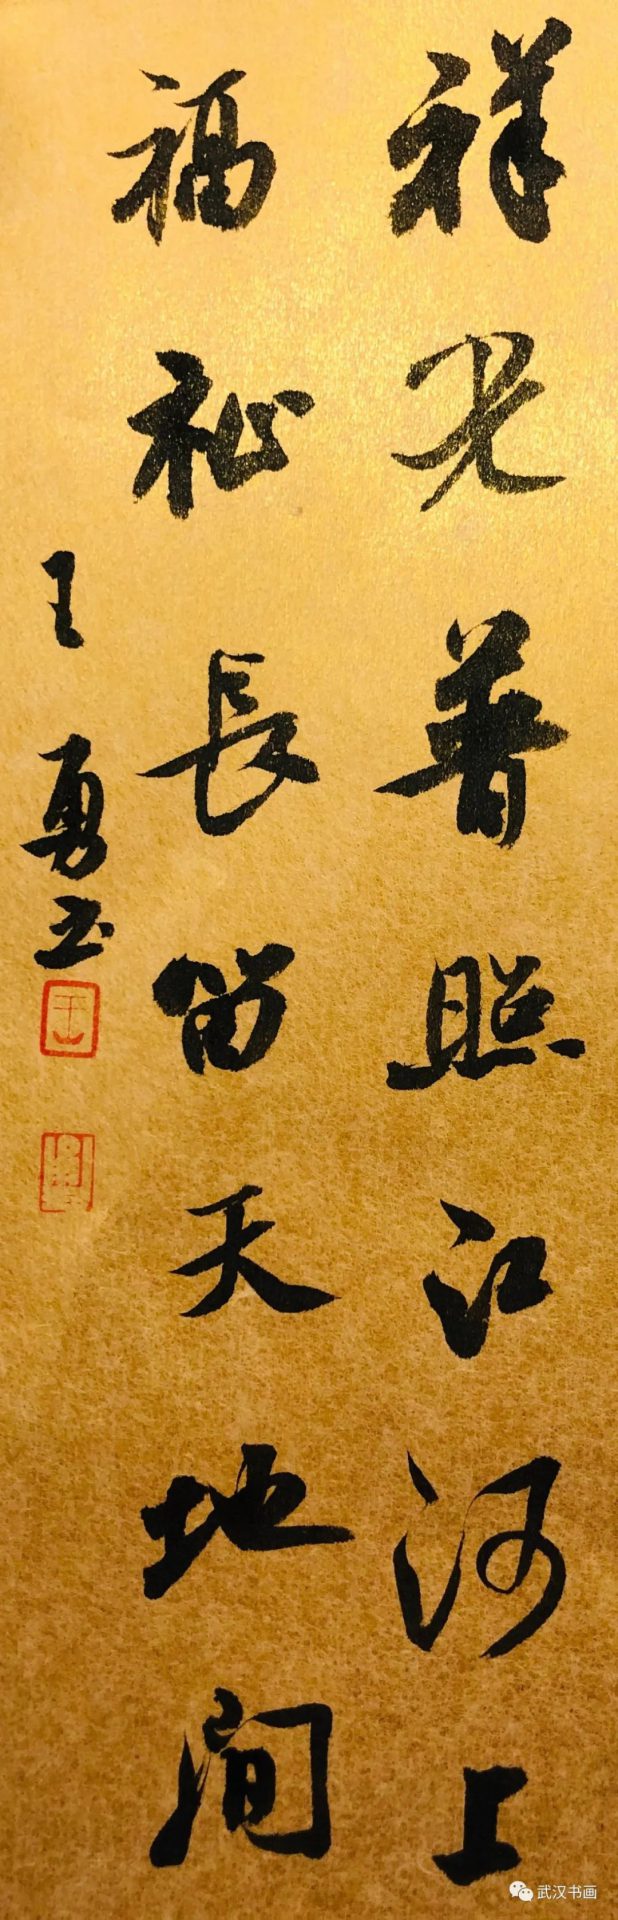 祥光普照江河上
福祉長留天地間
王勇书
武汉书画